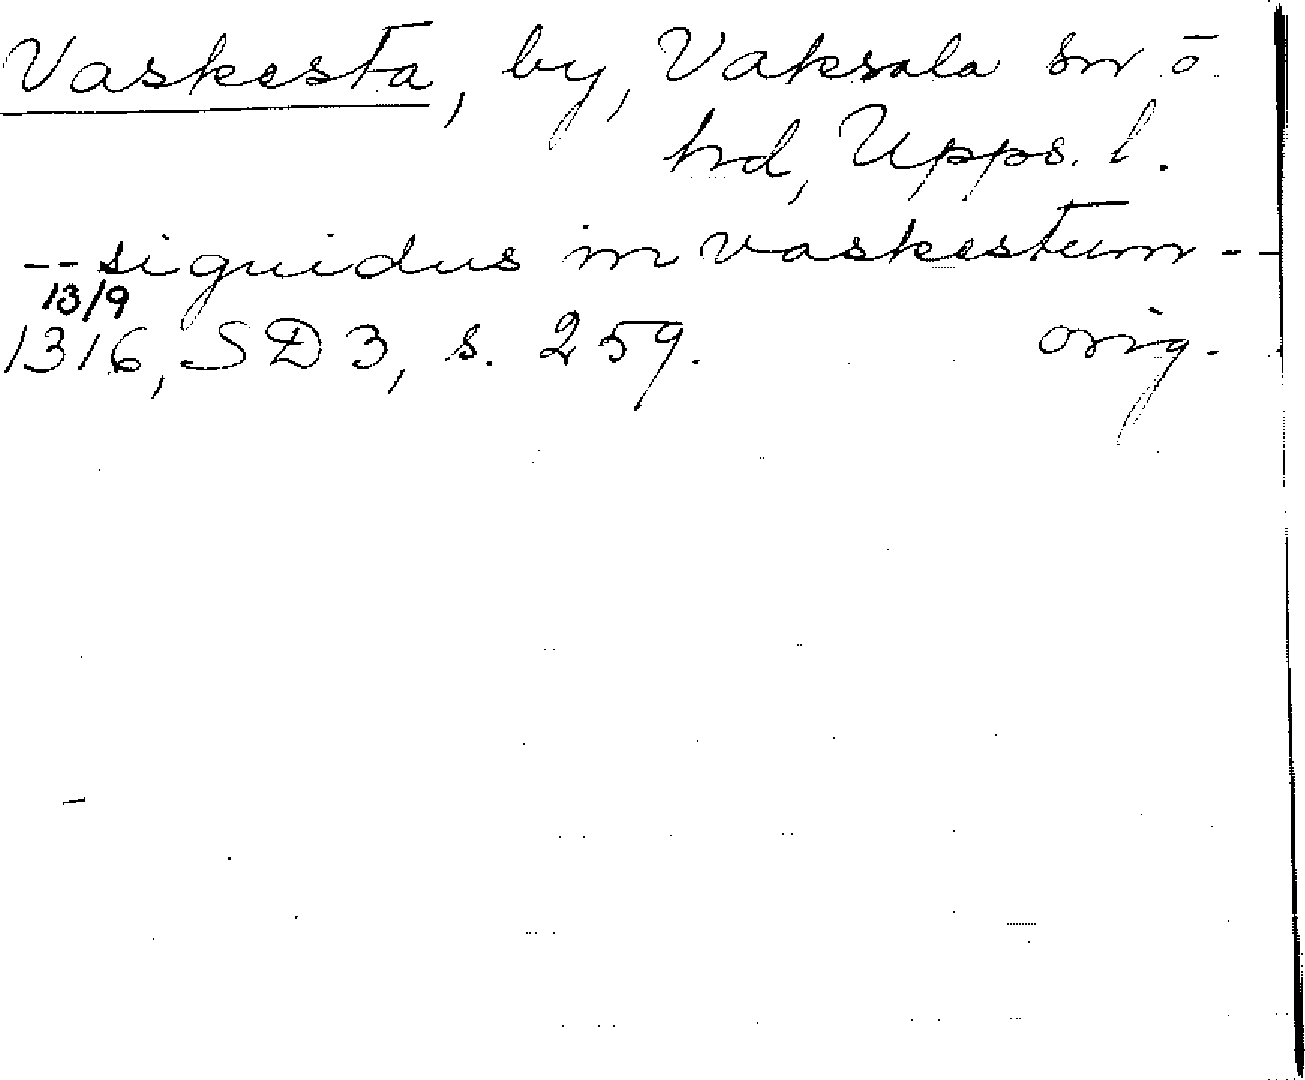 Vaskesta, by, Vaksala sn ō
hd, Upps. l.
-- siguidus in vaskestum --
13/9
1316, SD 3, s. 259. orig.